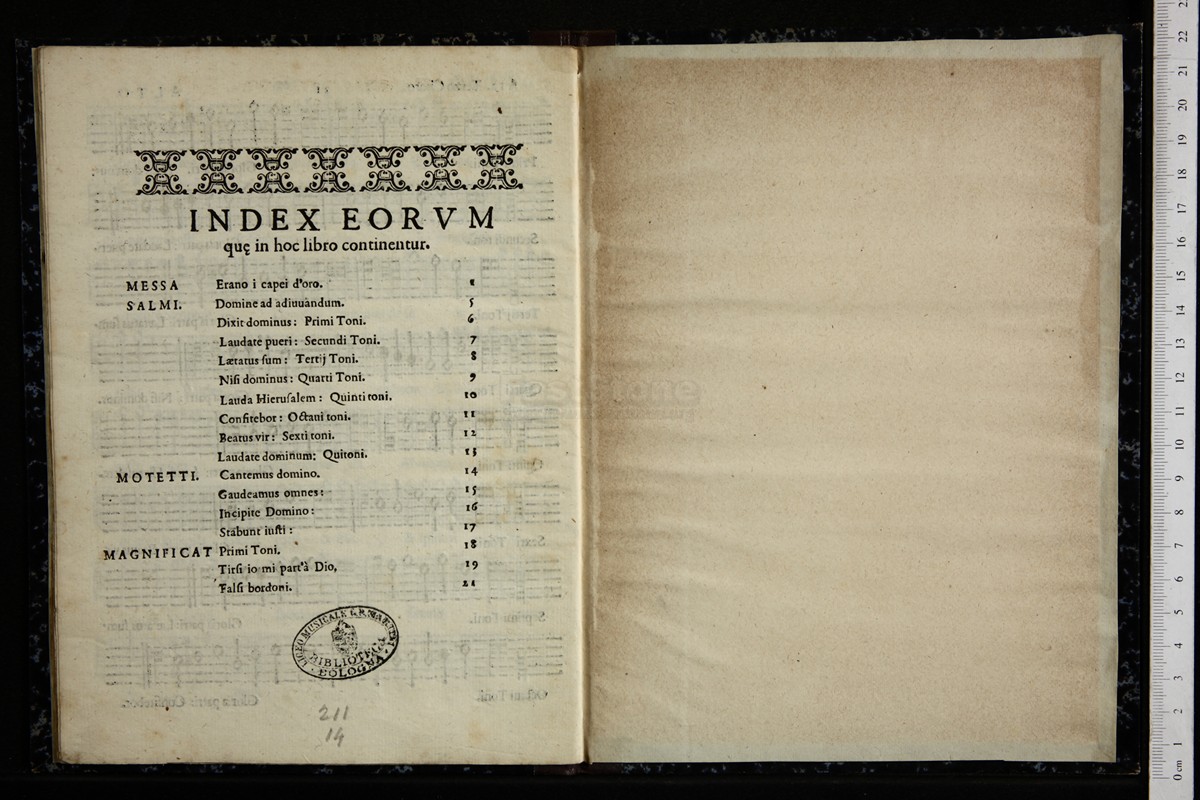 INDEX EORVM
quę in hoc libro continentur.
MESSA Erano i capei d'oro. 1
SALMI. Domine ad adiuuandum. 5
Dixit dominus: Primi Toni. 6
Laudate pueri: Secundi Toni. 7
Lætatus ſum: Tertij Toni. 8
Niſi dominus: Quarti Toni. 9
Lauda Hieruſalem: Quinti toni. 10
Confitebor: Octaui toni. 11
Beatus vir: Sexti toni. 12
Laudate dominum: Quitoni. 13
MOTETTI. Cantemus domino. 14
Gaudeamus omnes: 15
Incipite Domino: 16
Stabunt iuſti: 17
MAGNIFICAT Primi Toni. 18
Tirſi io mi part'à Dio, 19
Falſi bordoni. 21
LICEO MUSICALE G.B. MARTINI
BIBLIOTECA
BOLOGNA
211
14
0 cm 1 2 3 4 5 6 7 8 9 10 11 12 13 14 15 16 17 18 19 20 21 22